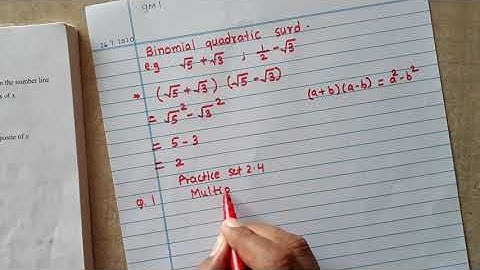 9M1
26.7.2020
Binomial quadratic surd.
e.g √5 + √3 ; 1/2 - √3
⇒ (√5 + √3) (√5 - √3)
(a+b)(a-b) = a² - b²
= √5² - √3²
= 5 - 3
= 2
Practice set 2.4
Q.1 Multip
n the number line
s of x
posite of x